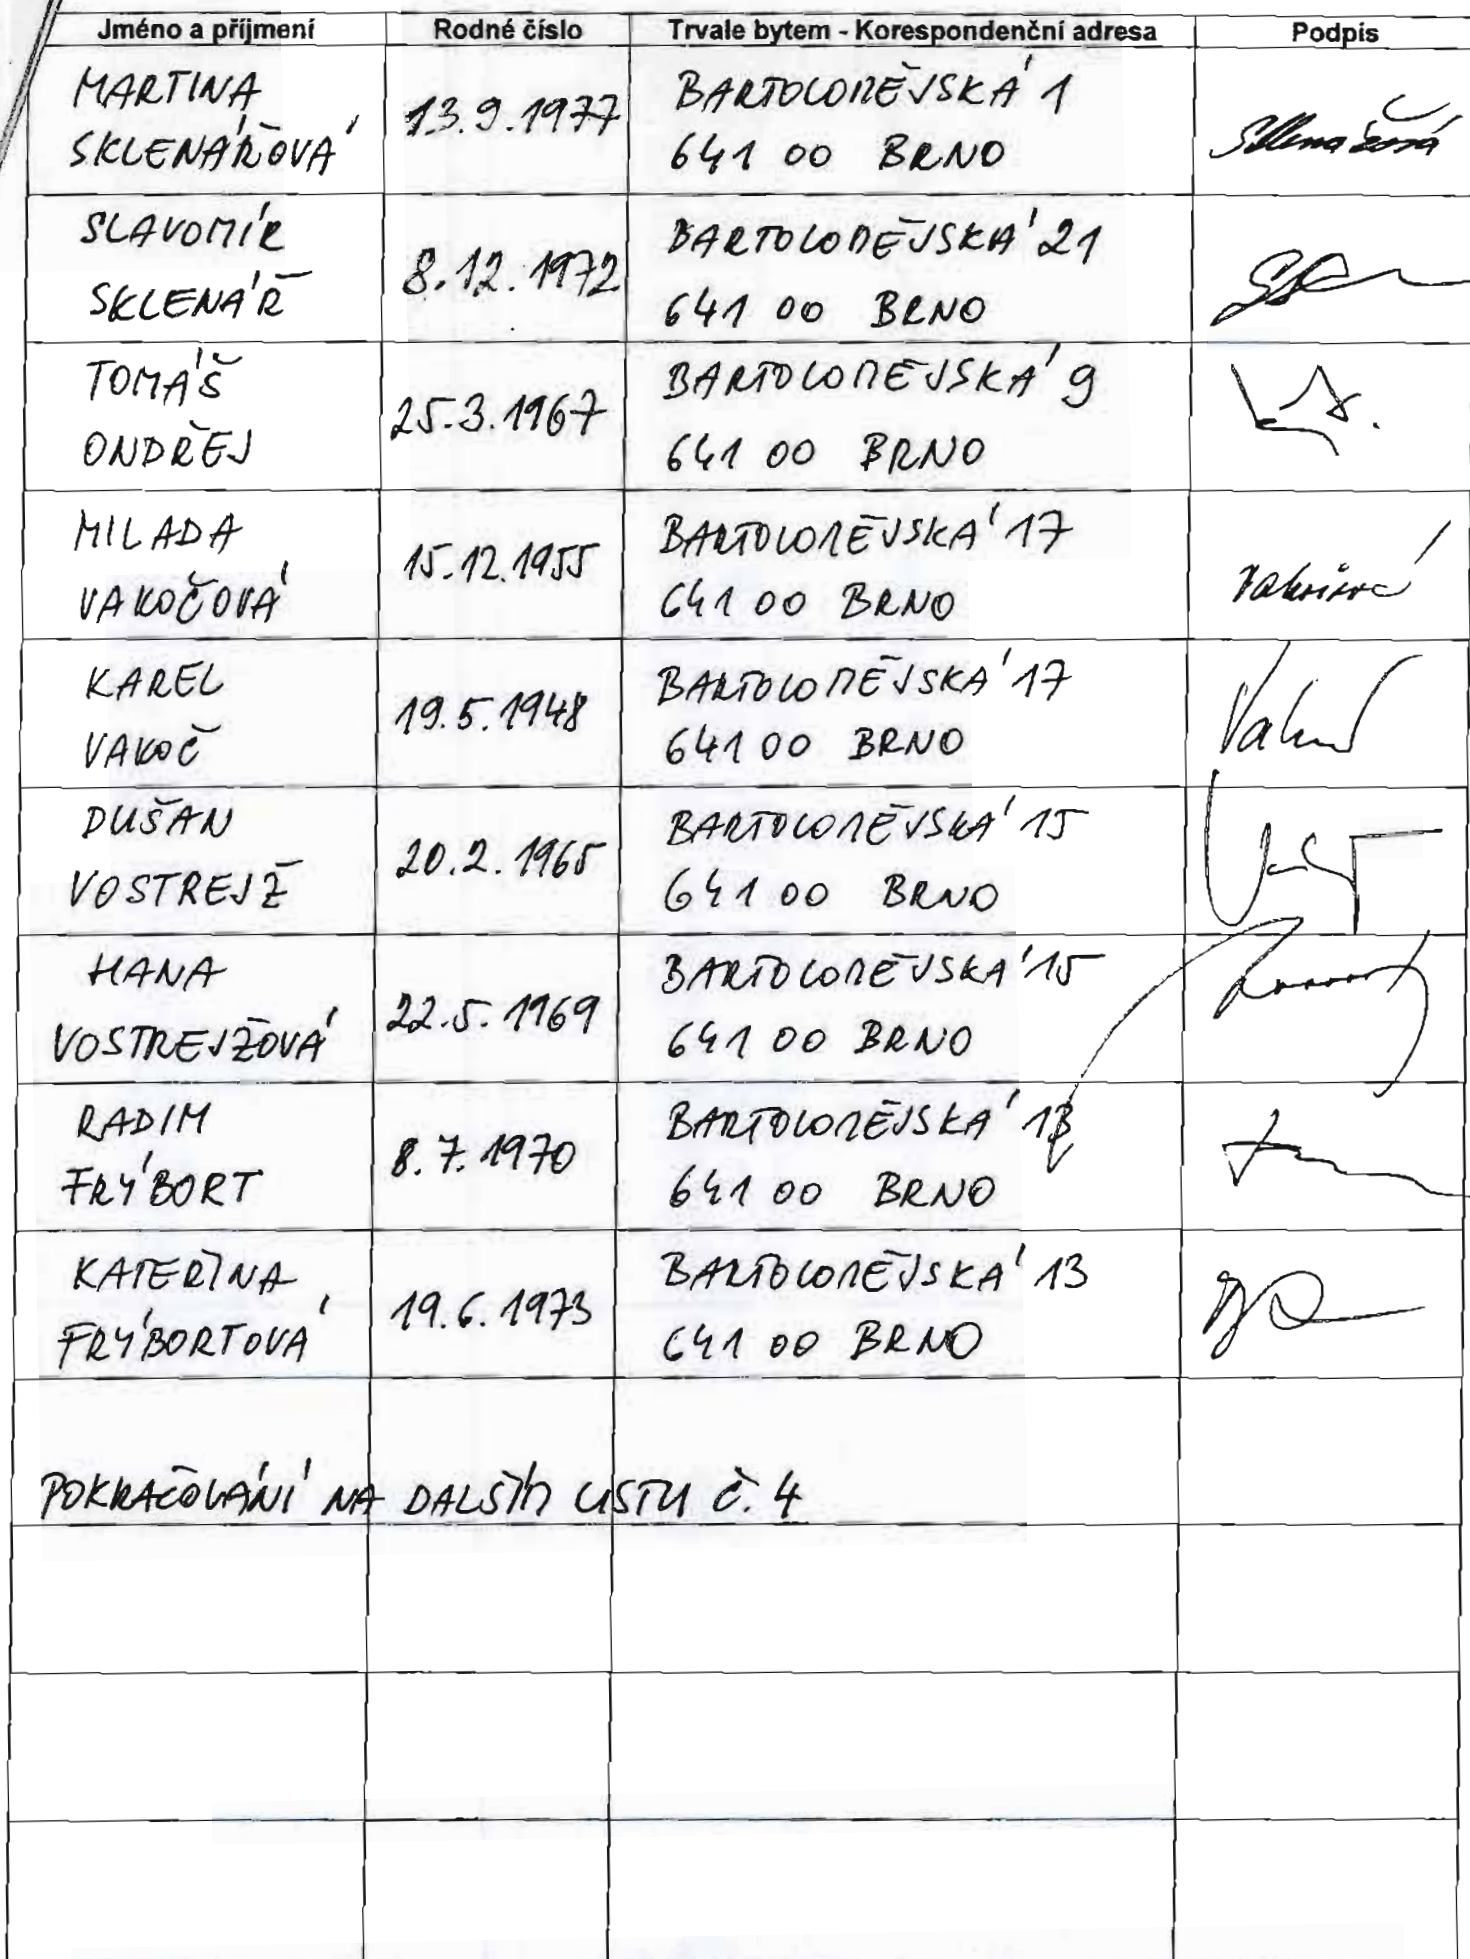 Jméno a příjmení Rodné číslo Trvale bytem - Korespondenční adresa Podpis
MARTINA SKLENÁŘOVÁ 13.9.1977 BARTOLOMĚJSKÁ 1
641 00 BRNO
SLAVOMÍR SKLENÁŘ 8.12.1972 BARTOLOMĚJSKÁ 21
641 00 BRNO
TOMÁŠ ONDŘEJ 25.3.1967 BARTOLOMĚJSKÁ 9
641 00 BRNO
MILADA VAKOČOVÁ 15.12.1955 BARTOLOMĚJSKÁ 17
641 00 BRNO
KAREL VAKOČ 19.5.1948 BARTOLOMĚJSKÁ 17
641 00 BRNO
DUŠAN VOSTREJŽ 20.2.1965 BARTOLOMĚJSKÁ 15
641 00 BRNO
HANA VOSTREJŽOVÁ 22.5.1969 BARTOLOMĚJSKÁ 15
641 00 BRNO
RADIM FRÝBORT 8.7.1970 BARTOLOMĚJSKÁ 13
641 00 BRNO
KATEŘINA FRÝBORTOVÁ 19.6.1973 BARTOLOMĚJSKÁ 13
641 00 BRNO
POKRAČOVÁNÍ NA DALŠÍM LISTU Č. 4